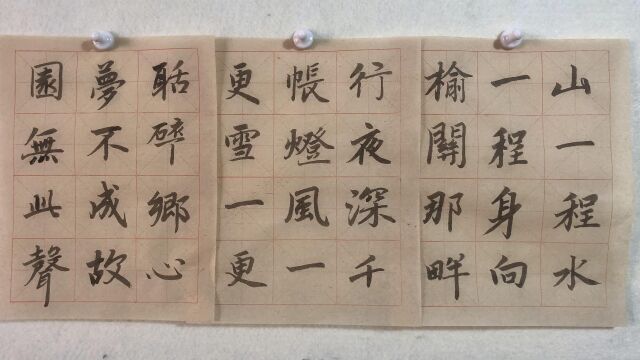 山一程水
一程身向
榆關那畔
行夜深千
帳燈風一
更雪一更
聒碎鄉心
夢不成故
園無此聲